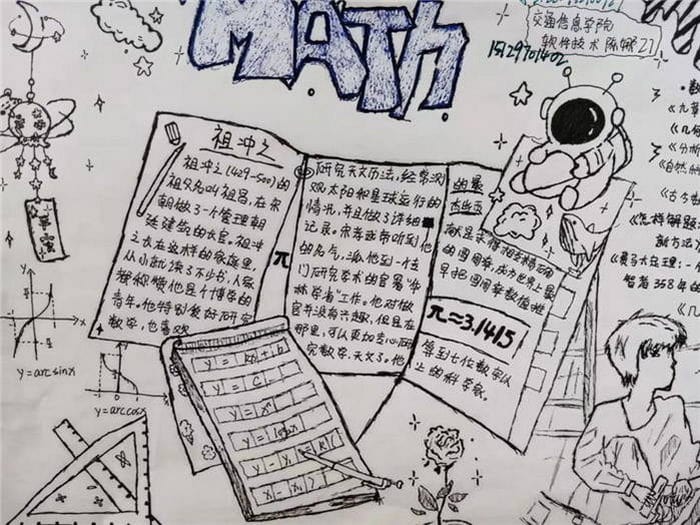 MATH
交通信息学院
软件技术 陈娜21
15129701402
祖冲之
祖冲之(429-500)的
祖父名叫祖昌,在宋
朝做了一个管理朝
廷建筑的长官。祖冲
之长在这样的家庭里,
从小就读了不少书,人家
都称赞他是个博学的
青年。他特别爱好研究
数学,也喜欢
π
研究天文历法,经常观
观太阳和星球运行的
情况,并且做了详细
记录。宋孝武帝听到他
的名气,派他到一个
门研究学术的官署"华
林学省"工作。他对做
官并没有兴趣,但是在
那里,可以更加专心研
究数学、天文了。他
的最
献是求得相当精确
的圆周率,成为世界上最
早把圆周率数值推
π≈3.1415
算到七位数字以
上的科学家。
y=arcsinx
y=arccosx
y=kx+b
y=c
《几何
《分析
《自然
《古今
《怎样解题:
新方法
《费马大定理:一
智者358年的
《几